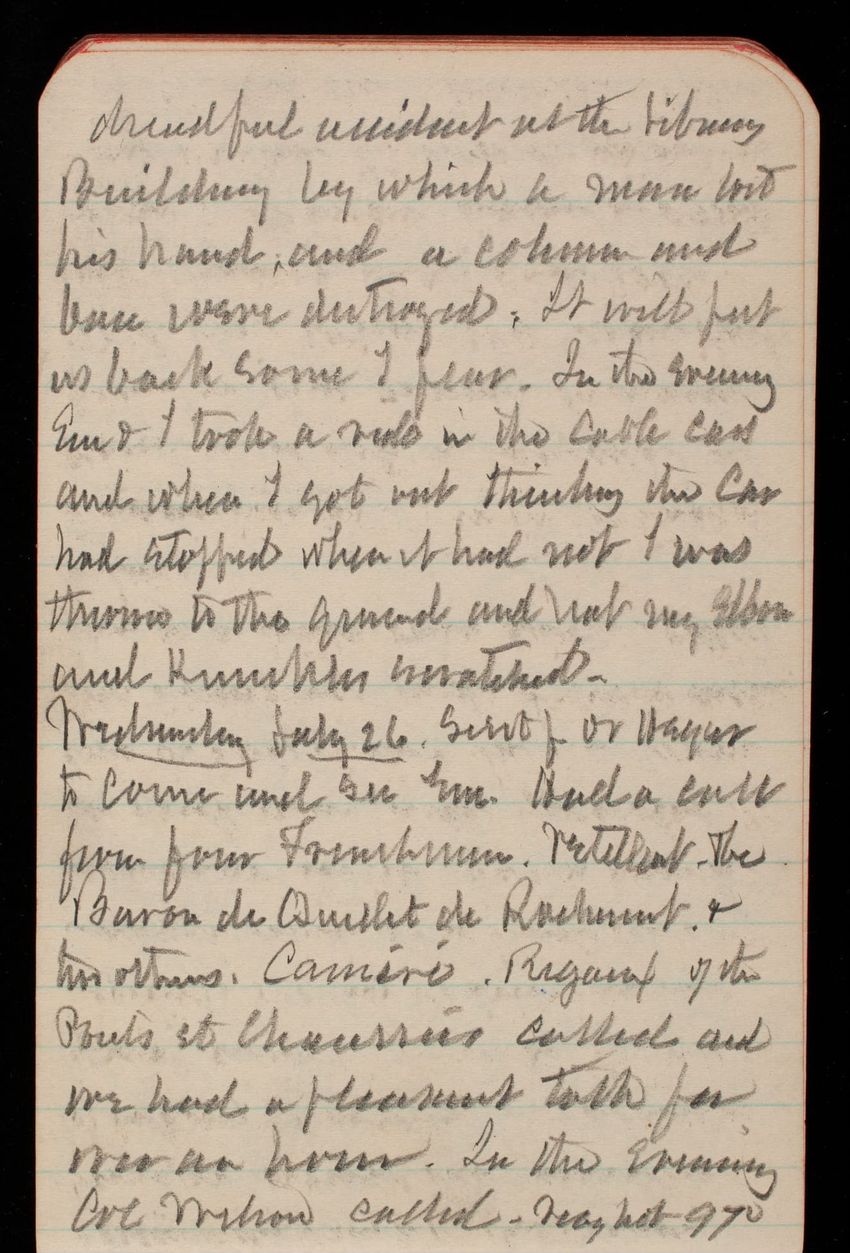 dreadful accident at the Library
Building by which a man lost
his hand, and a column and
base were destroyed. It will put
us back some I fear. In the evening
Em & I took a ride in the Cable Cars
and when I got out thinking the Car
had stopped when it had not I was
thrown to the ground and had my Elbow
and Knuckles scratched -
Wednesday July 26. Sent f Dr Hagner
to come and see Em. Had a call
from four Frenchmen. the
Baron de de Rochemont. &
two others. Caméré. Rigaux of the
Ponts et Chaussées called and
we had a pleasant talk for
over an hour. In the Evening
Col Wilson called - Very hot 97°